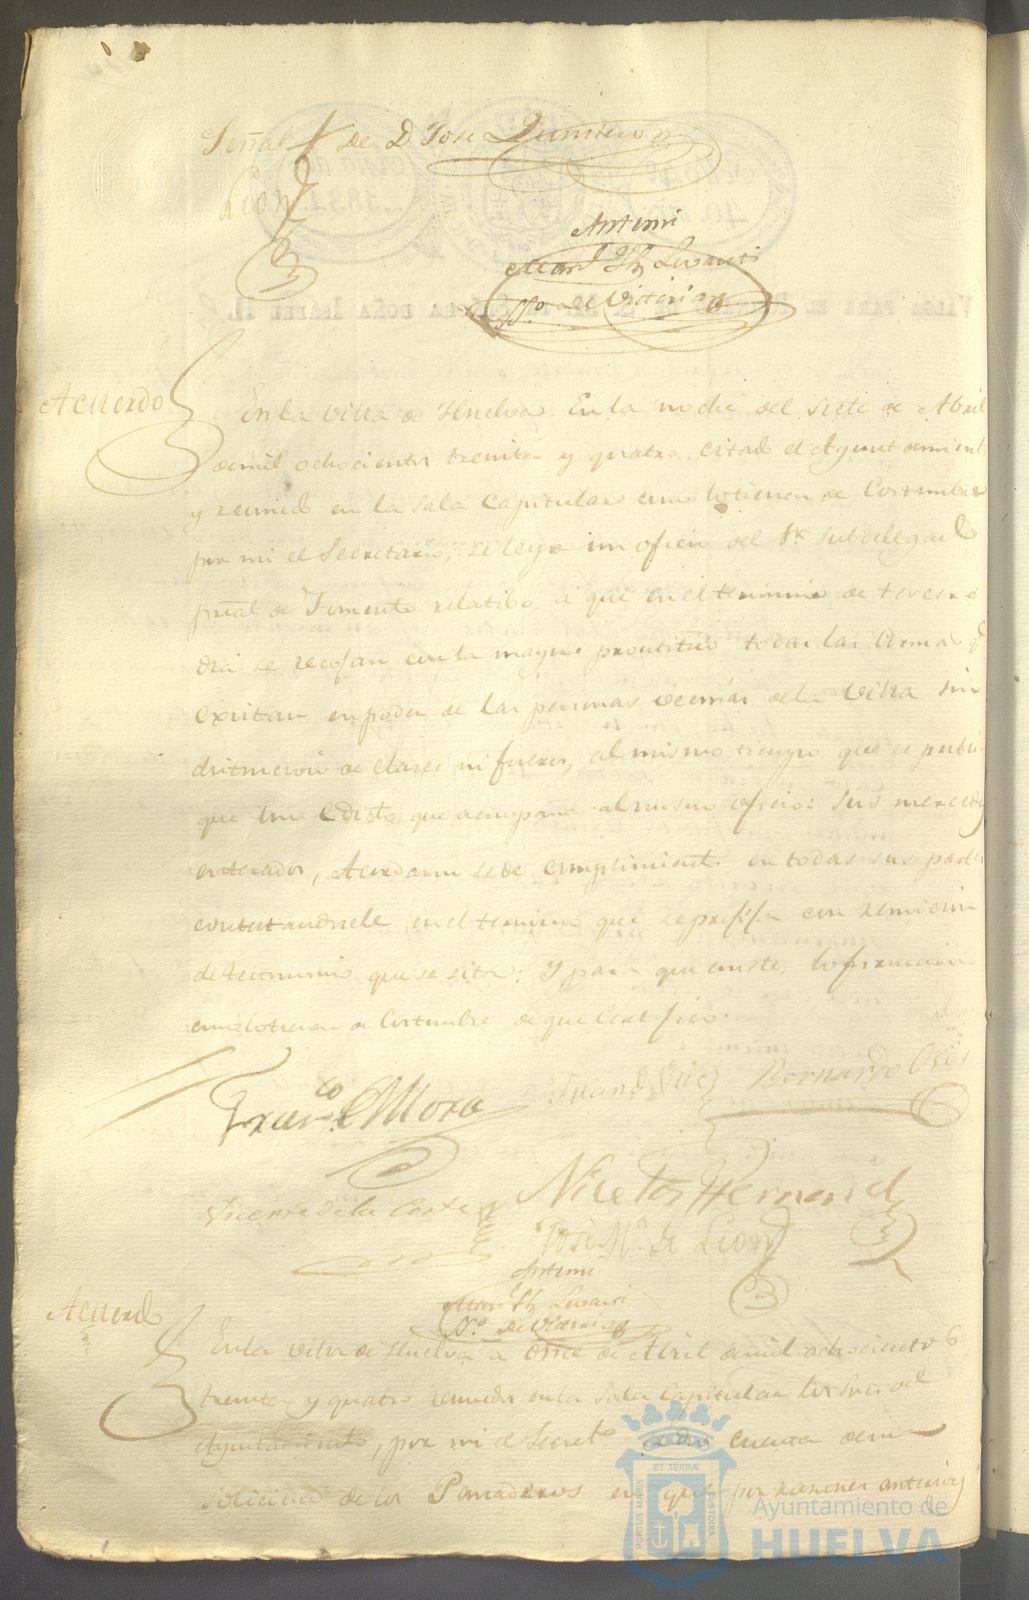 Señal + de D Jose Quintero
Leon
Antemi
de Victoria
Acuerdo
En la Villa de Huelva En la noche del Siete de Abril
demil ochocientos treinta y quatro citado el Ayuntamiento
y reunido en la Sala Capitular como lo tienen de Costumbre
por mi el Secretario, se leyo un oficio del Sr. Subdelegado
pral de Fomento relatibo a que en el termino de tercero
dia se recojan con la mayor prontitud todas las Armas q
existan en poder de las personas vecinas de la Villa sin
distincion de clases ni fueros, al mismo tiempo que se publi
que un Edicto que acompaña al mismo oficio: sus mercedes
enterados, Acordaron se de cumplimiento en todas sus partes
contestandosele en el termino que se prefija con remision
de testimonio que se cita: Y para que conste, lo firmaron
como lo tienen de Costumbre de que Certifico.
Franco. Mora
Juan Bernardo
Vicente de la Corte
Nicolas Hernand
Jose Ma. de Leon
Antemi
de Victoria
Acuerdo
En la Villa de Huelva a Once de Abril demil ochocientos
treinta y quatro reunidos en la Sala Capitular los Sres del
Ayuntamiento, por mi el Secreto. se dio Cuenta de una
solicitud de los Panaderos en que por razones anteriores
PORTUS MARIS
ET TERRÆ
CUSTODIA
Ayuntamiento de
HUELVA
VALGA PARA EL REINADO DE S. M. LA SEÑORA DOÑA ISABEL II.